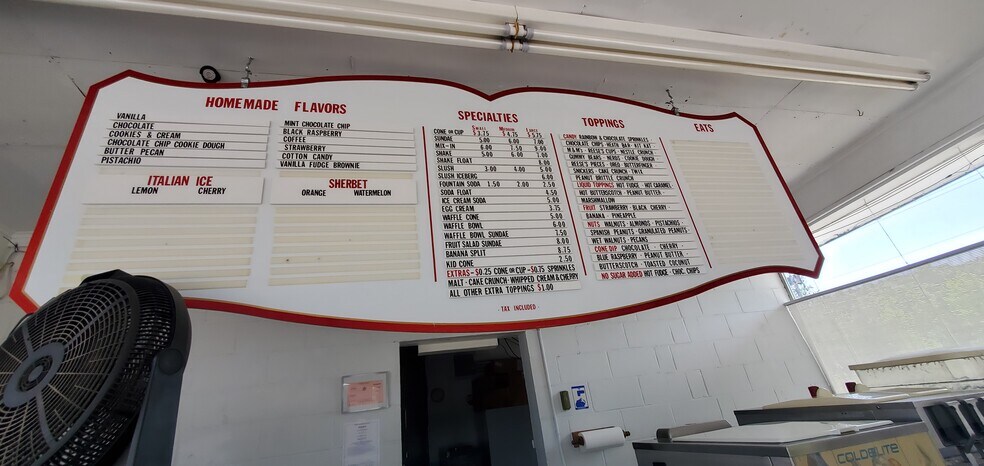 HOMEMADE FLAVORS
VANILLA
CHOCOLATE
COOKIES & CREAM
CHOCOLATE CHIP COOKIE DOUGH
BUTTER PECAN
PISTACHIO
MINT CHOCOLATE CHIP
BLACK RASPBERRY
COFFEE
STRAWBERRY
COTTON CANDY
VANILLA FUDGE BROWNIE
ITALIAN ICE
LEMON CHERRY
SHERBET
ORANGE WATERMELON
SPECIALTIES
SMALL MEDIUM LARGE
CONE OR CUP $3.75 $4.75 $5.75
SUNDAE 5.00 6.00 7.00
MIX-IN 6.00 7.50 9.00
SHAKE 5.00 6.00 7.00
SHAKE FLOAT 8.00
SLUSH 3.00 4.00 5.00
SLUSH ICEBERG 6.00
FOUNTAIN SODA 1.50 2.00 2.50
SODA FLOAT 4.50
ICE CREAM SODA 5.00
EGG CREAM 3.75
WAFFLE CONE 5.00
WAFFLE BOWL 6.00
WAFFLE BOWL SUNDAE 7.50
FRUIT SALAD SUNDAE 8.00
BANANA SPLIT 8.75
KID CONE 2.50
EXTRAS-$0.25 CONE OR CUP-$0.75 SPRINKLES
MALT-CAKE CRUNCH-WHIPPED CREAM & CHERRY
ALL OTHER EXTRA TOPPINGS $1.00
TOPPINGS
CANDY RAINBOW & CHOCOLATE SPRINKLES
CHOCOLATE CHIPS-HEATH BAR-KIT KAT
M&M's-REESE'S CUPS-NESTLE CRUNCH
GUMMY BEARS-NERDS-COOKIE DOUGH
REESE'S PIECES-OREO-BUTTERFINGER
SNICKERS-CAKE CRUNCH-TWIX
PEANUT BRITTLE CRUNCH
LIQUID TOPPINGS HOT FUDGE-HOT CARAMEL
HOT BUTTERSCOTCH-PEANUT BUTTER-
MARSHMALLOW
FRUIT STRAWBERRY-BLACK CHERRY-
BANANA-PINEAPPLE
NUTS WALNUTS-ALMONDS-PISTACHIOS-
SPANISH PEANUTS-GRANULATED PEANUTS-
WET WALNUTS-PECANS
CONE DIP CHOCOLATE-CHERRY
BLUE RASPBERRY-PEANUT BUTTER-
BUTTERSCOTCH-TOASTED COCONUT
NO SUGAR ADDED HOT FUDGE-CHOC. CHIPS
EATS
-TAX INCLUDED-
COLDELITE